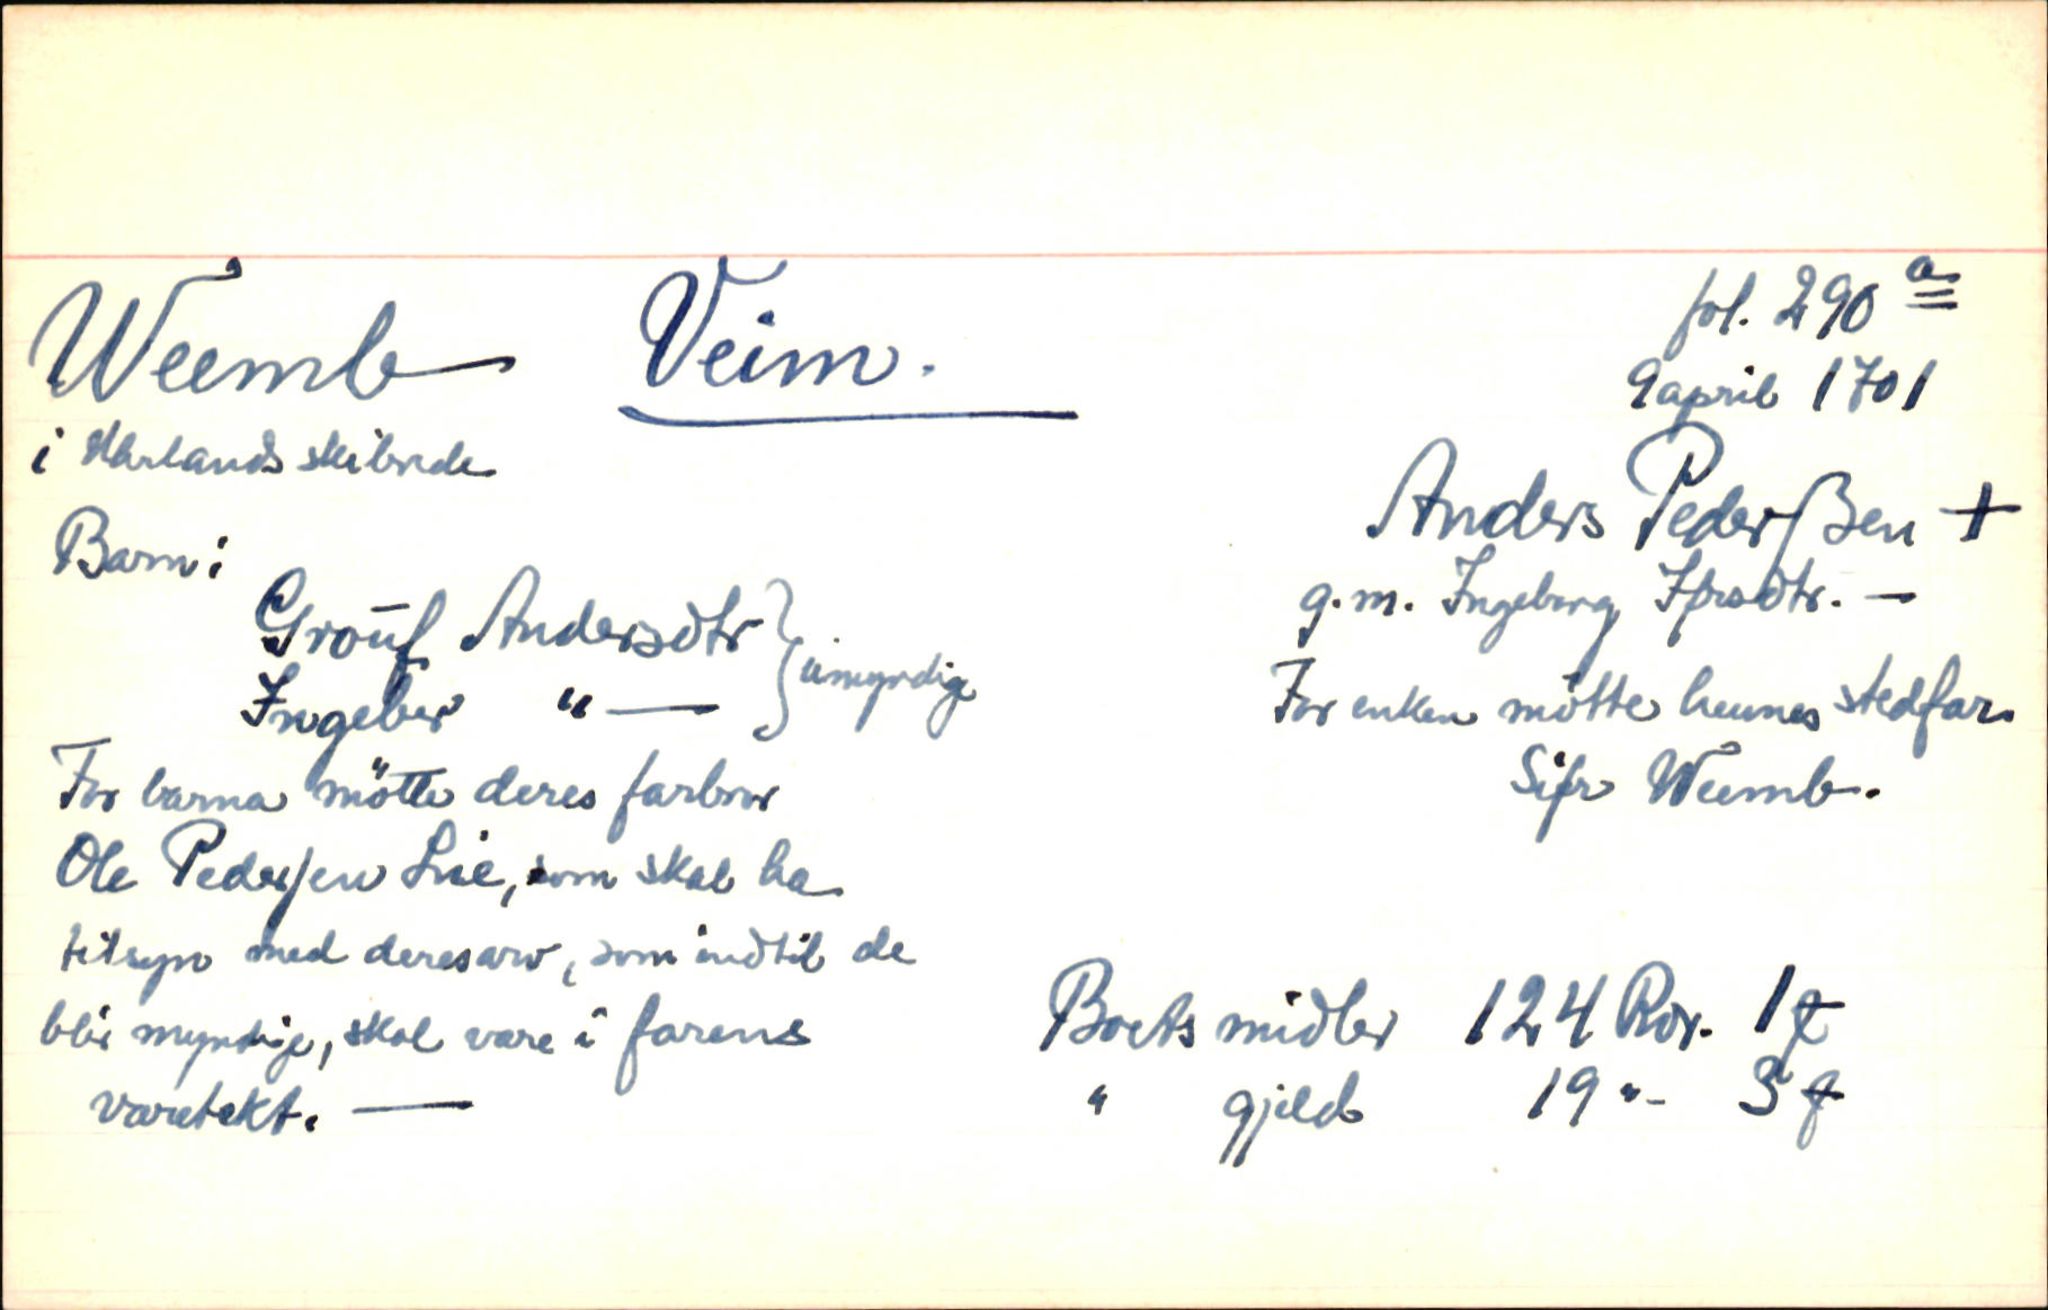 Weemb Veim.
fol. 290 a
9 april 1701
i Wartands skibrede
Anders Pederßen +
g.m. Ingeborg Ifrsdtr. —
For enken mötte hennes stedfar
Sifr Weemb.
Barn:
Groūf Andersdtr
Ingeber " —
} umyndig
For barna mötte deres farbror
Ole Pedersen Lie, som skal ha
tilsyn med deres arv, som indtil de
blir myndige, skal vare i farens
varetekt. —
Boets midler 124 Rdr. 1 f
" gjeld 19 " - 3 f